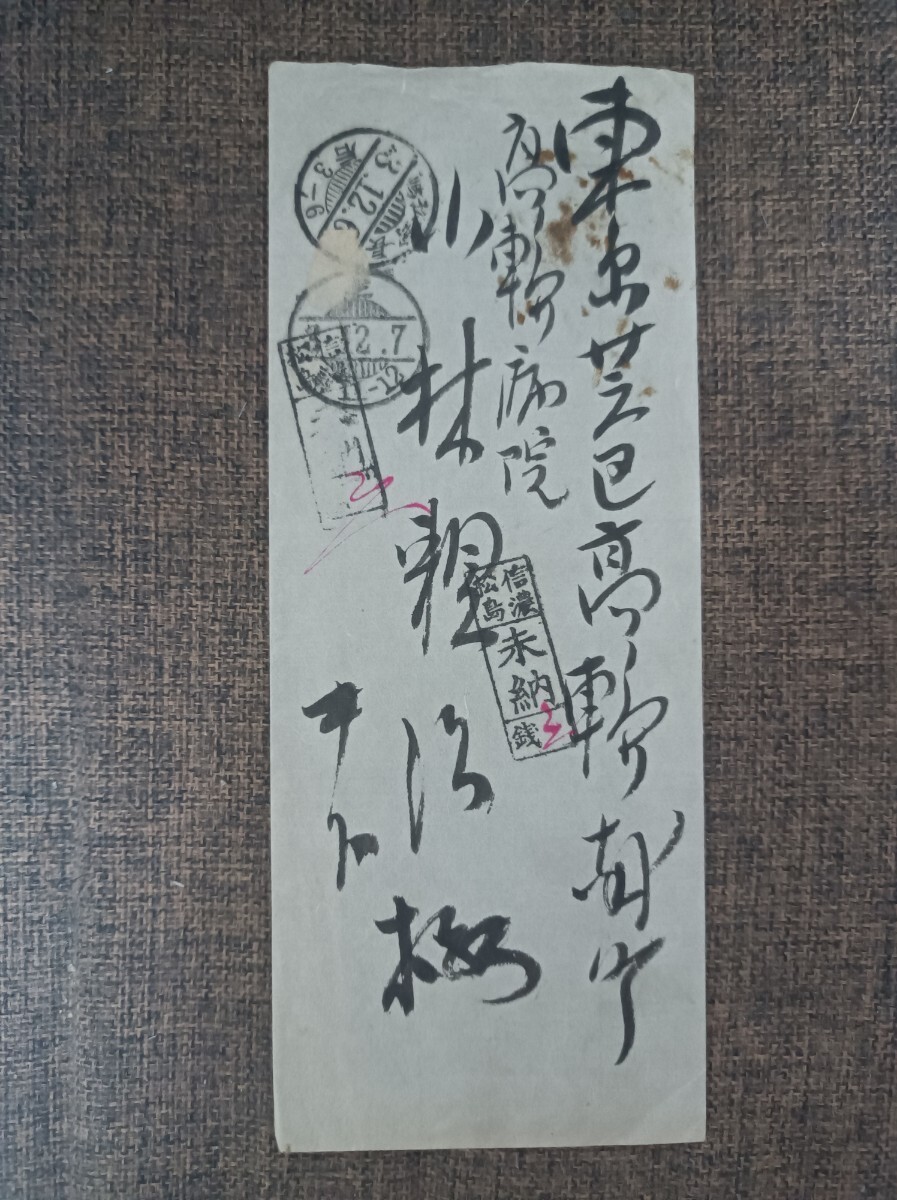 東京芝区高輪南町
高輪病院
小林朝治様
キ下
信濃
松島
未納
銭三
3.12.6
2.7